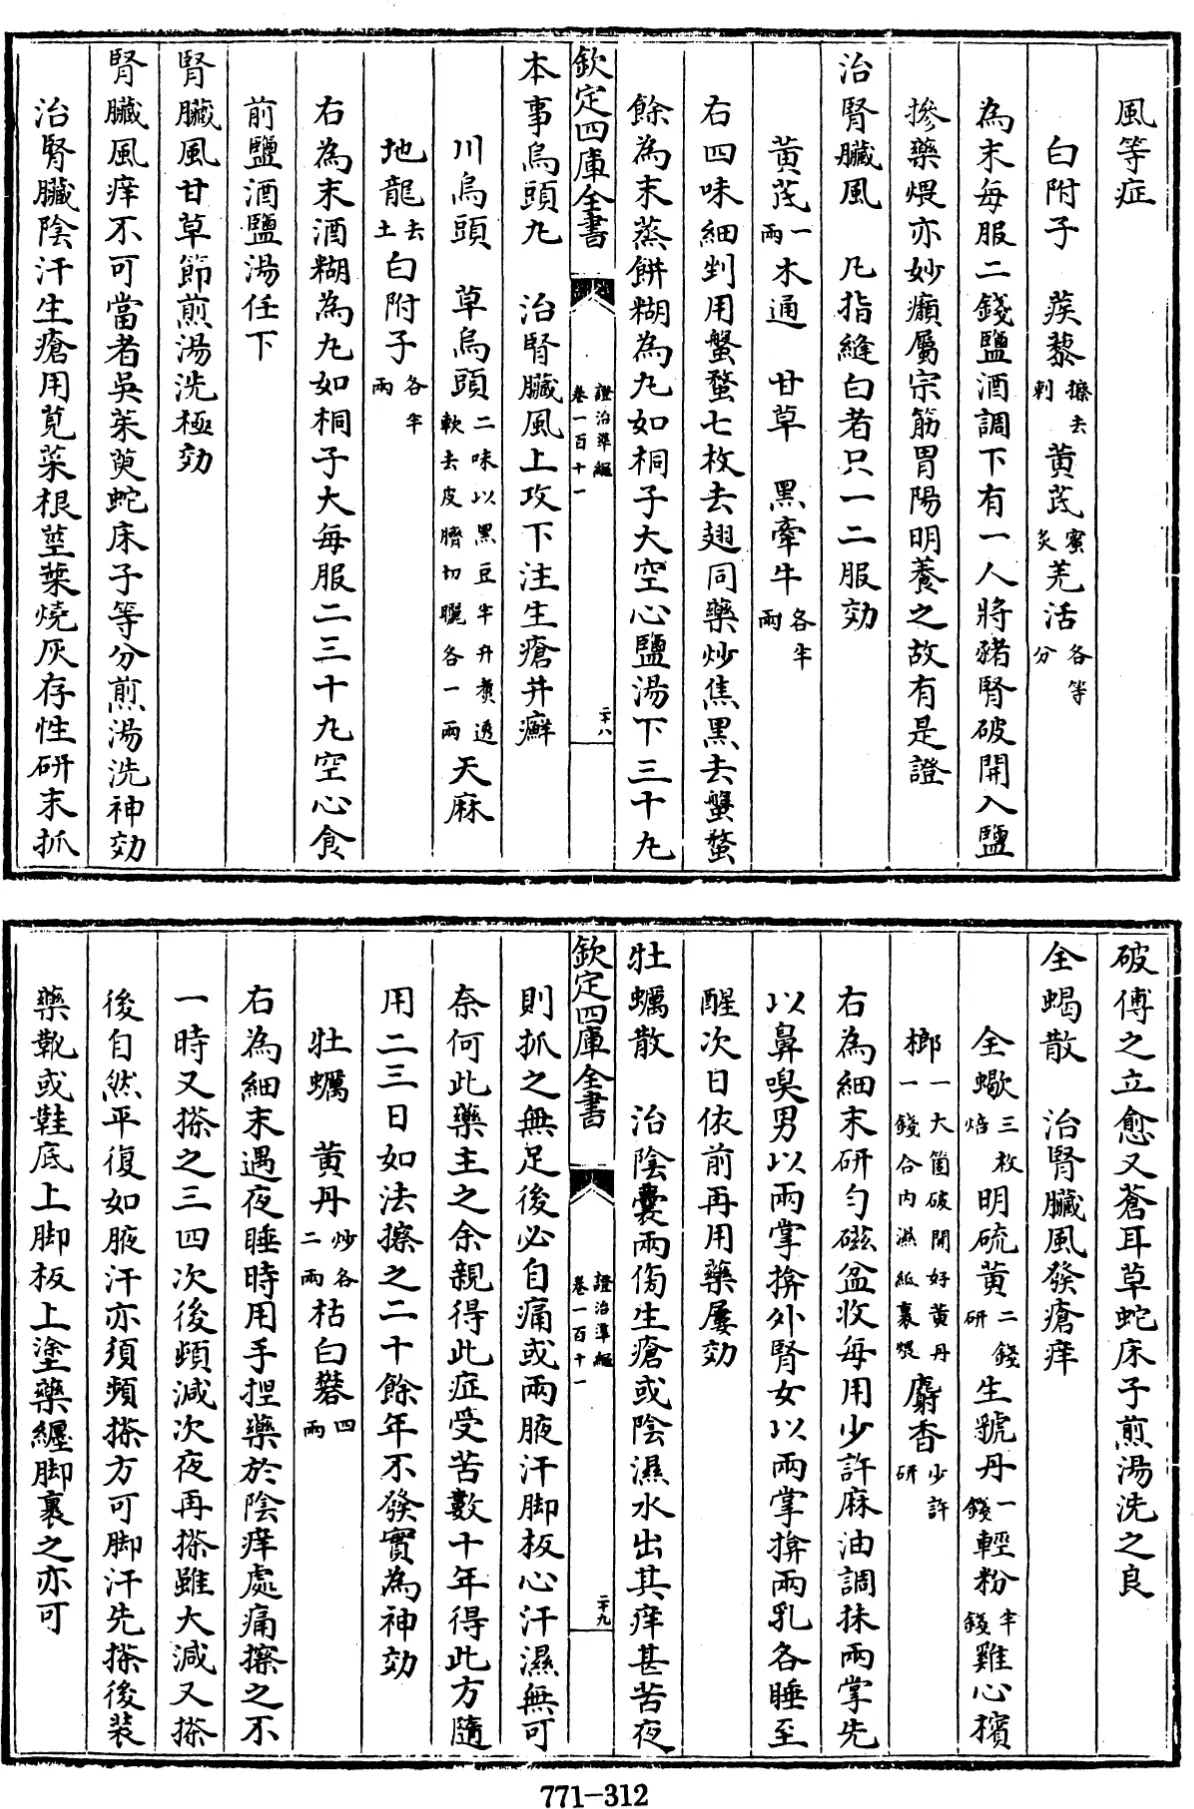 風等症
白附子　蒺藜擦去刺黃芪蜜炙羌活各等分
為末每服二錢鹽酒調下有一人將豬腎破開入鹽
摻藥煨亦妙癩屬宗筋胃陽明養之故有是證
治腎臟風　凡指縫白者只一二服効
黃芪一兩木通　甘草　黑牽牛各半兩
右四味細剉用蟹蝥七枚去翅同藥炒焦黑去蟹蝥
餘為末蒸餅糊為九如桐子大空心鹽湯下三十九
欽定四庫全書　證治準繩卷一百十一　二十八
本事烏頭九　治腎臟風上攻下注生瘡并癬
川烏頭　草烏頭二味以黑豆半升煑透軟去皮臍切曬各一兩天麻
地龍去土白附子各半兩
右為末酒糊為九如桐子大每服二三十九空心食
前鹽酒鹽湯任下
腎臟風甘草節煎湯洗極効
腎臟風痒不可當者吳茱萸蛇床子等分煎湯洗神効
治腎臟陰汗生瘡用莧菜根莖葉燒灰存性研末抓
破傅之立愈又蒼耳草蛇床子煎湯洗之良
全蝎散　治腎臟風發瘡痒
全蠍三枚焙明硫黃二錢研生虢丹一錢輕粉半錢雞心檳
榔一大箇破開好黃丹一錢合內濕紙裹煨麝香少許研
右為細末研勻磁盆收每用少許麻油調抹兩掌先
以鼻嗅男以兩掌揜外腎女以兩掌揜兩乳各睡至
醒次日依前再用藥屢効
欽定四庫全書　證治準繩卷一百十一　二十九
牡蠣散　治陰囊兩傍生瘡或陰濕水出其痒甚苦夜
則抓之無足後必自痛或兩腋汗脚板心汗濕無可
奈何此藥主之余親得此症受苦數十年得此方隨
用二三日如法擦之二十餘年不發實為神効
牡蠣　黃丹炒各二兩枯白礬四兩
右為細末遇夜睡時用手捏藥於陰痒處痛擦之不
一時又搽之三四次後頻減次夜再搽雖大減又搽
後自然平復如腋汗亦須頻搽方可脚汗先搽後裝
藥靴或鞋底上脚板上塗藥纒脚裹之亦可
771-312